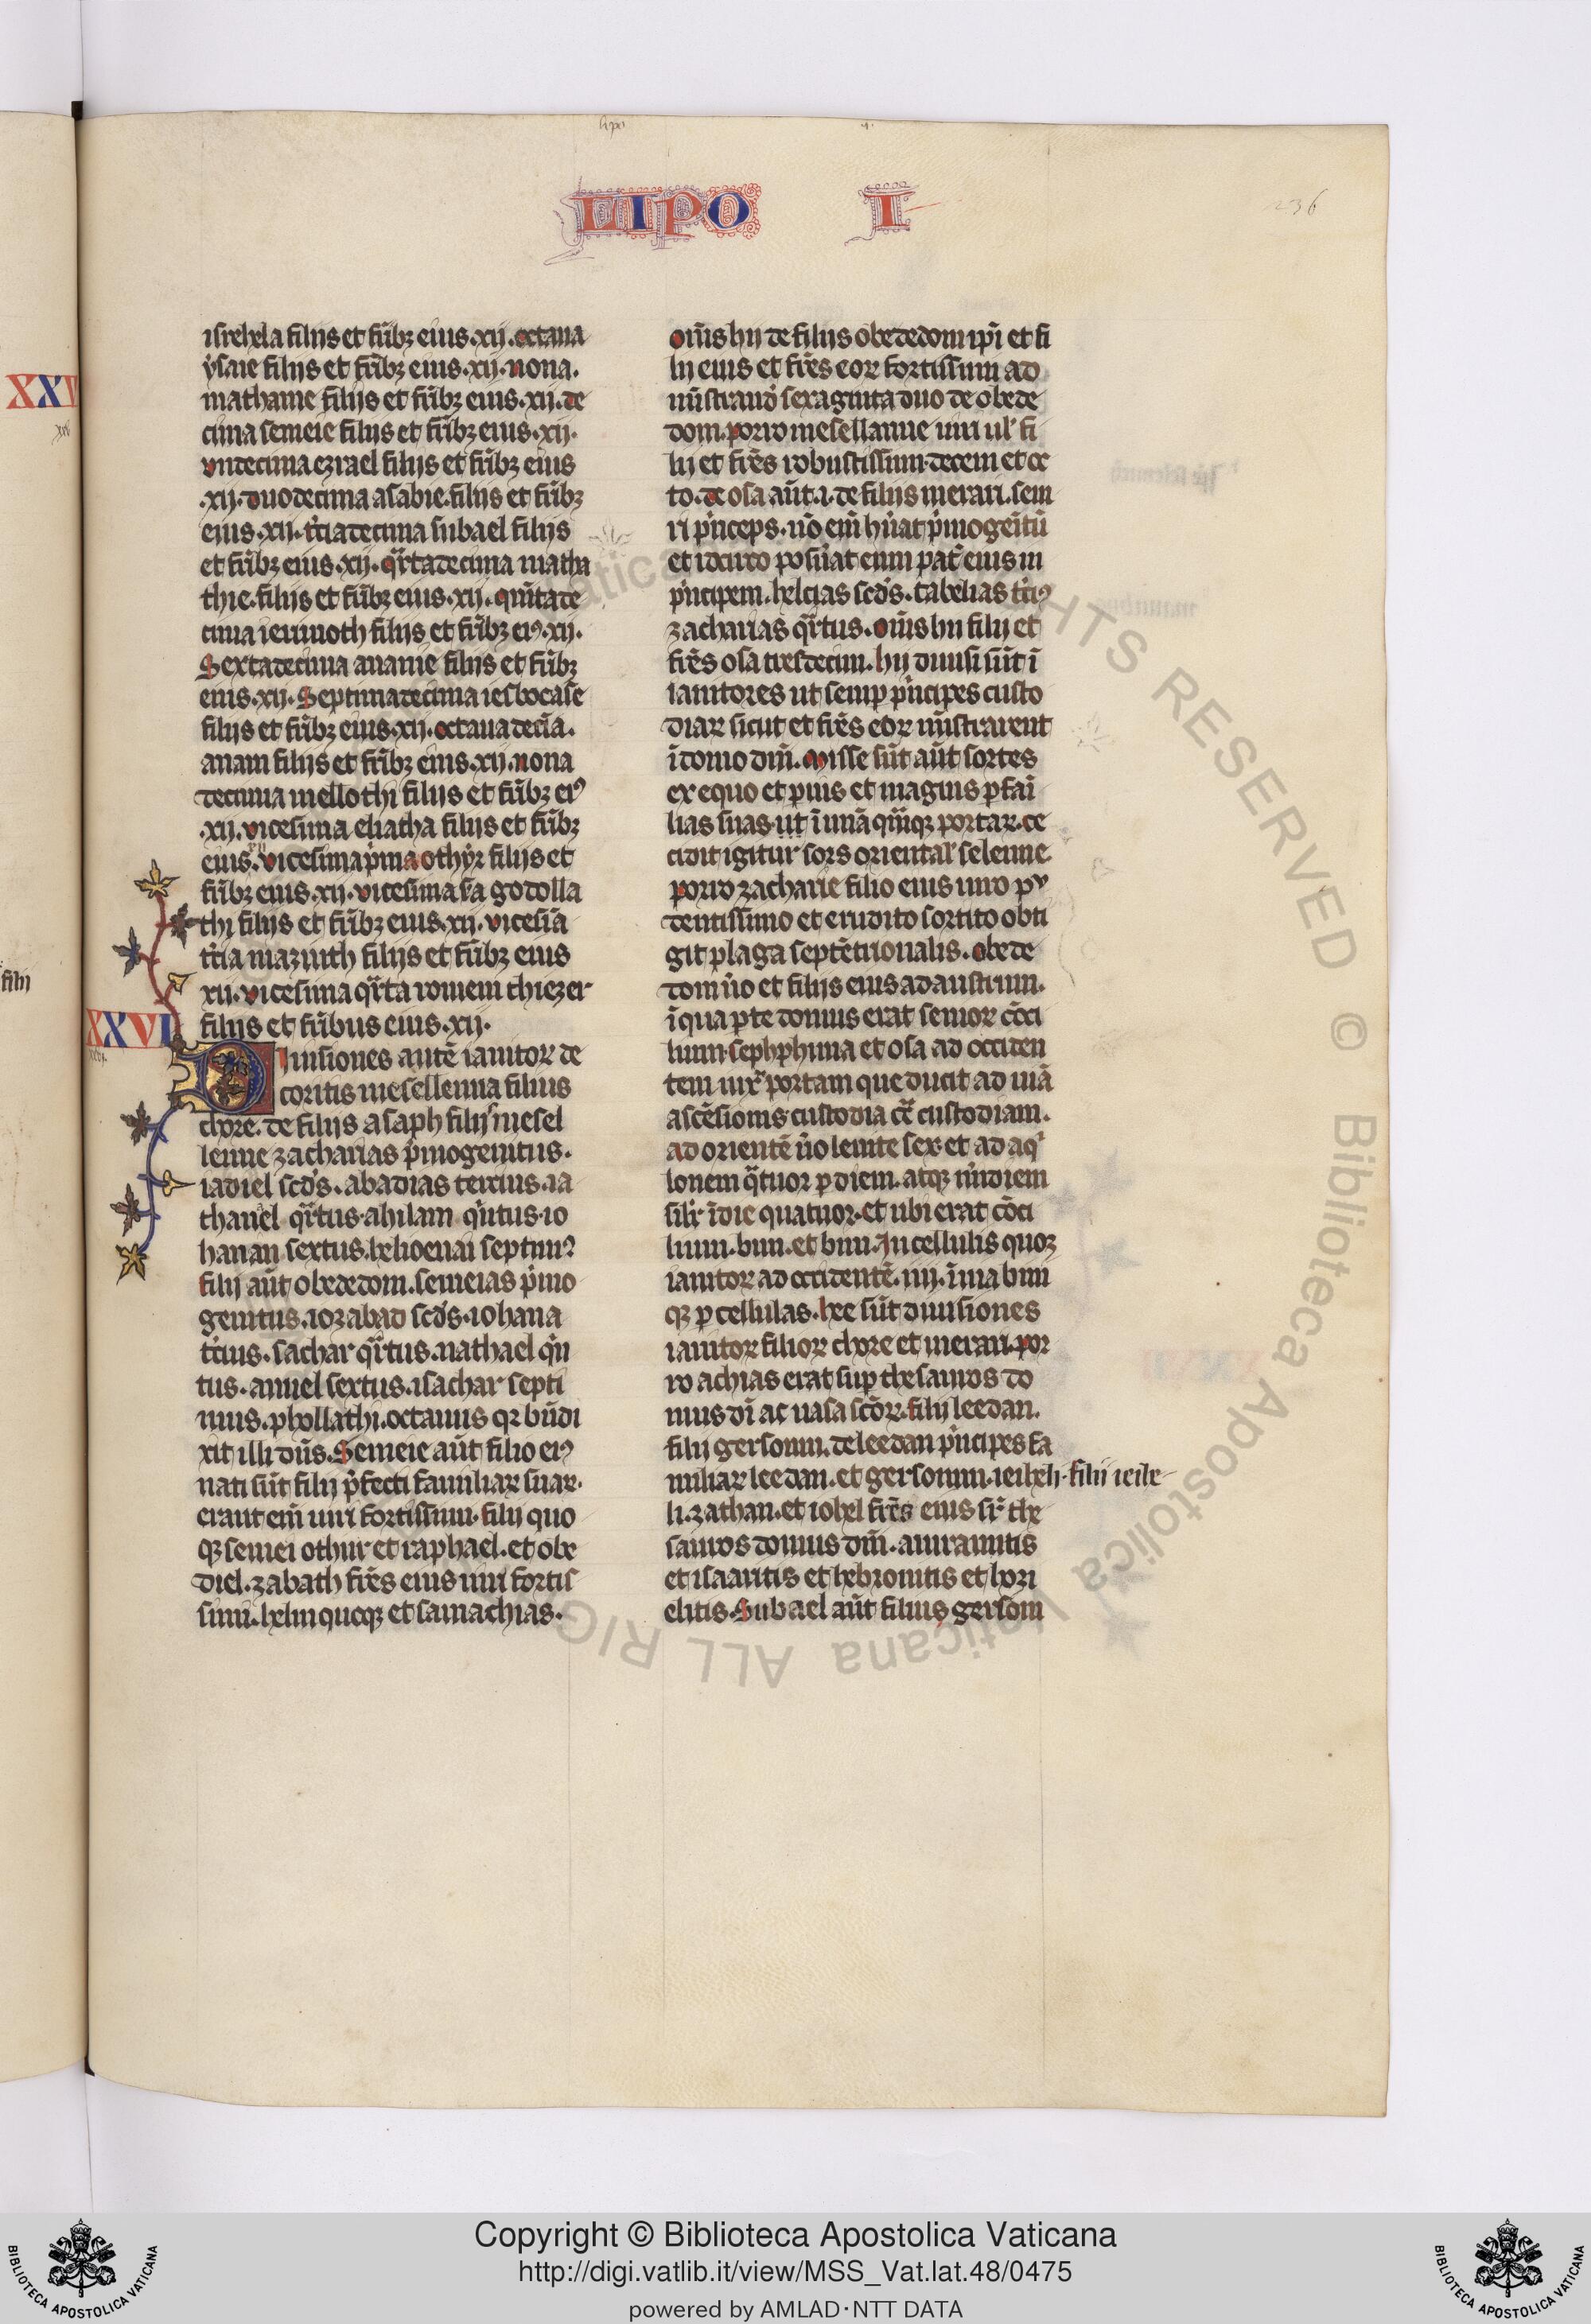 lipo i
LIPO I
236
isrehela filijs et fr̄ibꝫ eius .xij. octaua
ysaie filijs et fr̄ibꝫ eius .xij. nona.
mathanie filijs et fr̄ibꝫ eius .xij. de
cima semeie filijs et fr̄ibꝫ eius .xij.
vndecima ezrael filijs et fr̄ibꝫ eius
.xij. duodecima asabie. filijs et fr̄ibꝫ
eius .xij. t̓ciadecima subael filijs
et fr̄ibꝫ eius .xij. qͣrtadecima matha
thie. filijs et fr̄ibꝫ eius .xij. quītade
cima ierimoth filijs et fr̄ibꝫ eiꝰ .xij.
Sextadecima ananie filijs et fr̄ibꝫ
eius .xij. Septimadecima iesbocase
filijs et fr̄ibꝫ eius .xij. octauadecīa.
anam filijs et fr̄ibꝫ eius .xij. nona
decima mellothi filijs et fr̄ibꝫ eiꝰ
.xij. vicesima eliatha filijs et fr̄ibꝫ
eius .xij. vicesimapͥma othyr filijs et
fr̄ibꝫ eius .xij. vicesima sͣa godolla
thi filijs et fr̄ibꝫ eius .xij. vicesīa
t̓cia mazuith filijs et fr̄ibꝫ eius
xij. vicesima qͣrta romem thiezer
filijs et fr̄ibus eius .xij.
XXVI
Diuisiones autē ianitoꝝ de
coritis mesellemia filius
chore. de filijs asaph filijs mesel
lemie zacharias pͥmogenitus.
iadiel scd̓s. abadias tercius. ia
thanel qͣrtus. ahilam qͥntus. io
hanan sextus. helioenai septimꝰ
filij aūt obededom. semeias pͥmo
genitus. iozabad scd̓s. iohana
t̓cius. sachar qͣrtus. nathael qͥn
tus. amiel sextus. isachar septi
mus. phollathi. octauus qꝛ bn̄di
xit illi dn̄s. Semeie aūt filio eiꝰ
nati sūt filij p̄fecti familiaꝝ suaꝝ.
erant em̄ uiri fortissimi. filij quo
qꝫ semei othni et raphael. et obe
diel. zabath fr̄es eius uiri fortis
simi. heliu quoqꝫ et samachias.
Om̄s hij de filijs obededom ip̄i et fi
lij eius et fr̄es eoꝝ fortissimi ad
mīstrand̓ sexaginta duo de obede
dom. porro mesellamie uiri ul̓ fi
lij et fr̄es robustissimi. decem et oc
to. de osa aūt .i. de filijs merari. sem
ri pͥnceps. nō em̄ hūat pͥmogenitū
et idcirco posūat eum pat̓ eius in
pͥncipem. helcias scd̓s. tabelias t̓ciꝰ
zacharias qͣrtus. om̄s hii filij et
fr̄es osa tresdecim. hij diuisi sūt ī
ianitores ut semꝑ pͥncipes custo
diaꝝ sicut et fr̄es eoꝝ mīstrarent
ī domo dn̄i. Misse sūt aūt sortes
ex equo et paruis et magnis ꝑ fāi
lias suas. ut ī unāqͣmqꝫ portaꝝ. ce
cidit igitur sors oriental̓ selemie
porro zacharie filio eius uiro pru
dentissimo et erudito sortito obti
git plaga septētrionalis. obede
dom u̓o et filijs eius ad austrum.
ī qua ꝑte domus erat senioꝝ cōci
lium. sephphima et osa ad occiden
tem iuxͣ portam que ducit ad uiā
ascēsionis custodia cōͣ custodiam.
ad orientē u̓o leuite sex. et ad aqͥ
lonem qͣtuor ꝑ diem. atqꝫ mīdiem
silr̓ ī die quatuor. et ubi erat cōci
lium. bini. et bini. In cellulis quoqꝫ
ianitoꝝ ad occidentē. iiij. ī uia bini
qꝫ ꝑ cellulas. hee sūt diuisiones
ianitoꝝ filioꝝ chore et merari. por
ro achias erat suꝑ thesauros do
mus dī ac uasa scōꝝ. filij leedan.
filij gersonni. de leedan pͥncipes fa
miliaꝝ leedan. et gersonni. ieiheli. filij ieihe
li. zathan. et iohel fr̄es eius suꝑ the
sauros domus dn̄i. amramitis
et isaaritis et hebronitis et hozi
elitis. Subael aūt filius gersom
XXV
filij
Copyright © Biblioteca Apostolica Vaticana
http://digi.vatlib.it/view/MSS_Vat.lat.48/0475
powered by AMLAD·NTT DATA
BIBLIOTECA APOSTOLICA VATICANA
BIBLIOTECA APOSTOLICA VATICANA
© Biblioteca Apostolica Vaticana ALL RIGHTS RESERVED